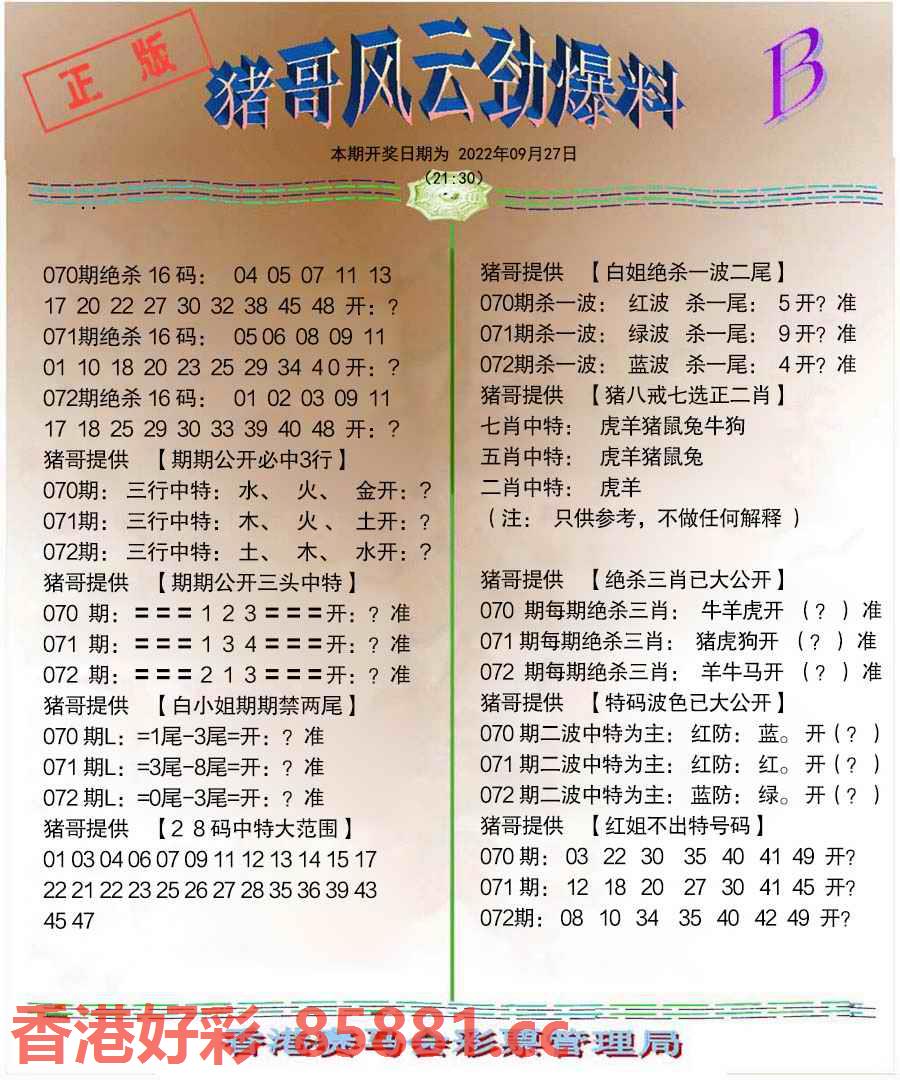 正版
猪哥风云劲爆料
B
本期开奖日期为 2022年09月27日
(21:30)
070期绝杀16码: 04 05 07 11 13
17 20 22 27 30 32 38 45 48 开:?
071期绝杀16码: 05 06 08 09 11
01 10 18 20 23 25 29 34 40开:?
072期绝杀16码: 01 02 03 09 11
17 18 25 29 30 33 39 40 48 开:?
猪哥提供 【期期公开必中3行】
070期: 三行中特: 水、 火、 金开:?
071期: 三行中特: 木、 火、 土开:?
072期: 三行中特: 土、 木、 水开:?
猪哥提供 【期期公开三头中特】
070 期:===1 2 3===开:?准
071 期:===1 3 4===开:?准
072 期:===2 1 3===开:?准
猪哥提供 【白小姐期期禁两尾】
070期L: =1尾-3尾=开:?准
071期L: =3尾-8尾=开:?准
072期L: =0尾-3尾=开:?准
猪哥提供 【28码中特大范围】
01 03 04 06 07 09 11 12 13 14 15 17
22 21 22 23 25 26 27 28 35 36 39 43
45 47
猪哥提供 【白姐绝杀一波二尾】
070期杀一波: 红波 杀一尾: 5开?准
071期杀一波: 绿波 杀一尾: 9开?准
072期杀一波: 蓝波 杀一尾: 4开?准
猪哥提供 【猪八戒七选正二肖】
七肖中特: 虎羊猪鼠兔牛狗
五肖中特: 虎羊猪鼠兔
二肖中特: 虎羊
(注: 只供参考,不做任何解释)
猪哥提供 【绝杀三肖已大公开】
070 期每期绝杀三肖: 牛羊虎开 (?)准
071期每期绝杀三肖: 猪虎狗开 (?)准
072 期每期绝杀三肖: 羊牛马开 (?)准
猪哥提供 【特码波色已大公开】
070期二波中特为主: 红防: 蓝。开(?)
071期二波中特为主: 红防: 红。开(?)
072期二波中特为主: 蓝防: 绿。开(?)
猪哥提供 【红姐不出特号码】
070期: 03 22 30 35 40 41 49 开?
071期: 12 18 20 27 30 41 45 开?
072期: 08 10 34 35 40 42 49 开?
香港好彩 85881.cc
香港赛马会彩票管理局